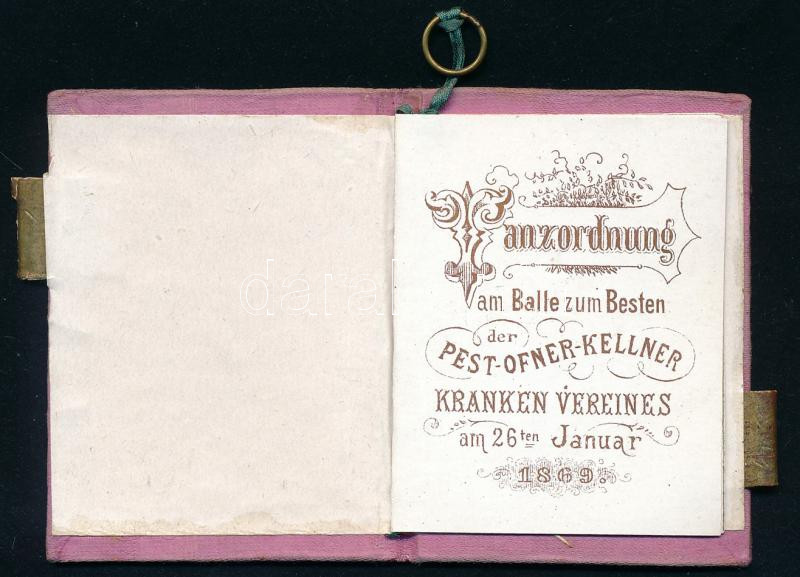 Tanzordnung
am Balle zum Besten
der
PEST-OFNER-KELLNER
KRANKEN VEREINES
am 26ten Januar
1869.